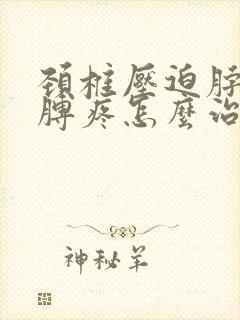 頚椎壓迫脖
膊疼怎麼治
神秘羊